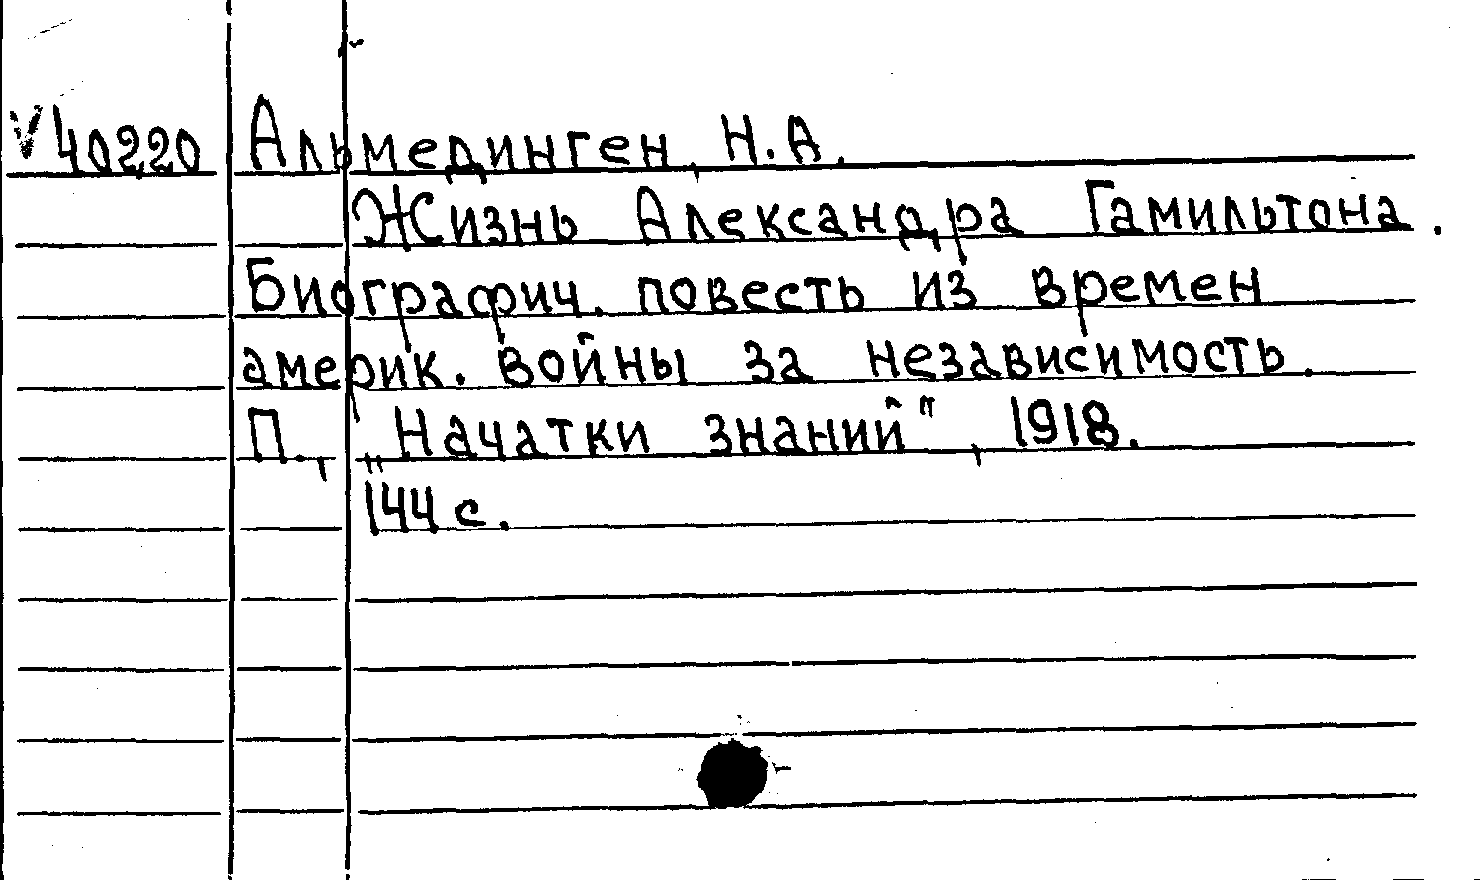 V 40220 Альмединген, Н.А.
Жизнь Александра Гамильтона.
Биографич. повесть из времен
америк. войны за независимость.
П., „Начатки знаний", 1918.
144 с.